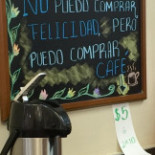 NO PUEDO COMPRAR
FELICIDAD, PERO
PUEDO COMPRAR
CAFÉ
$5